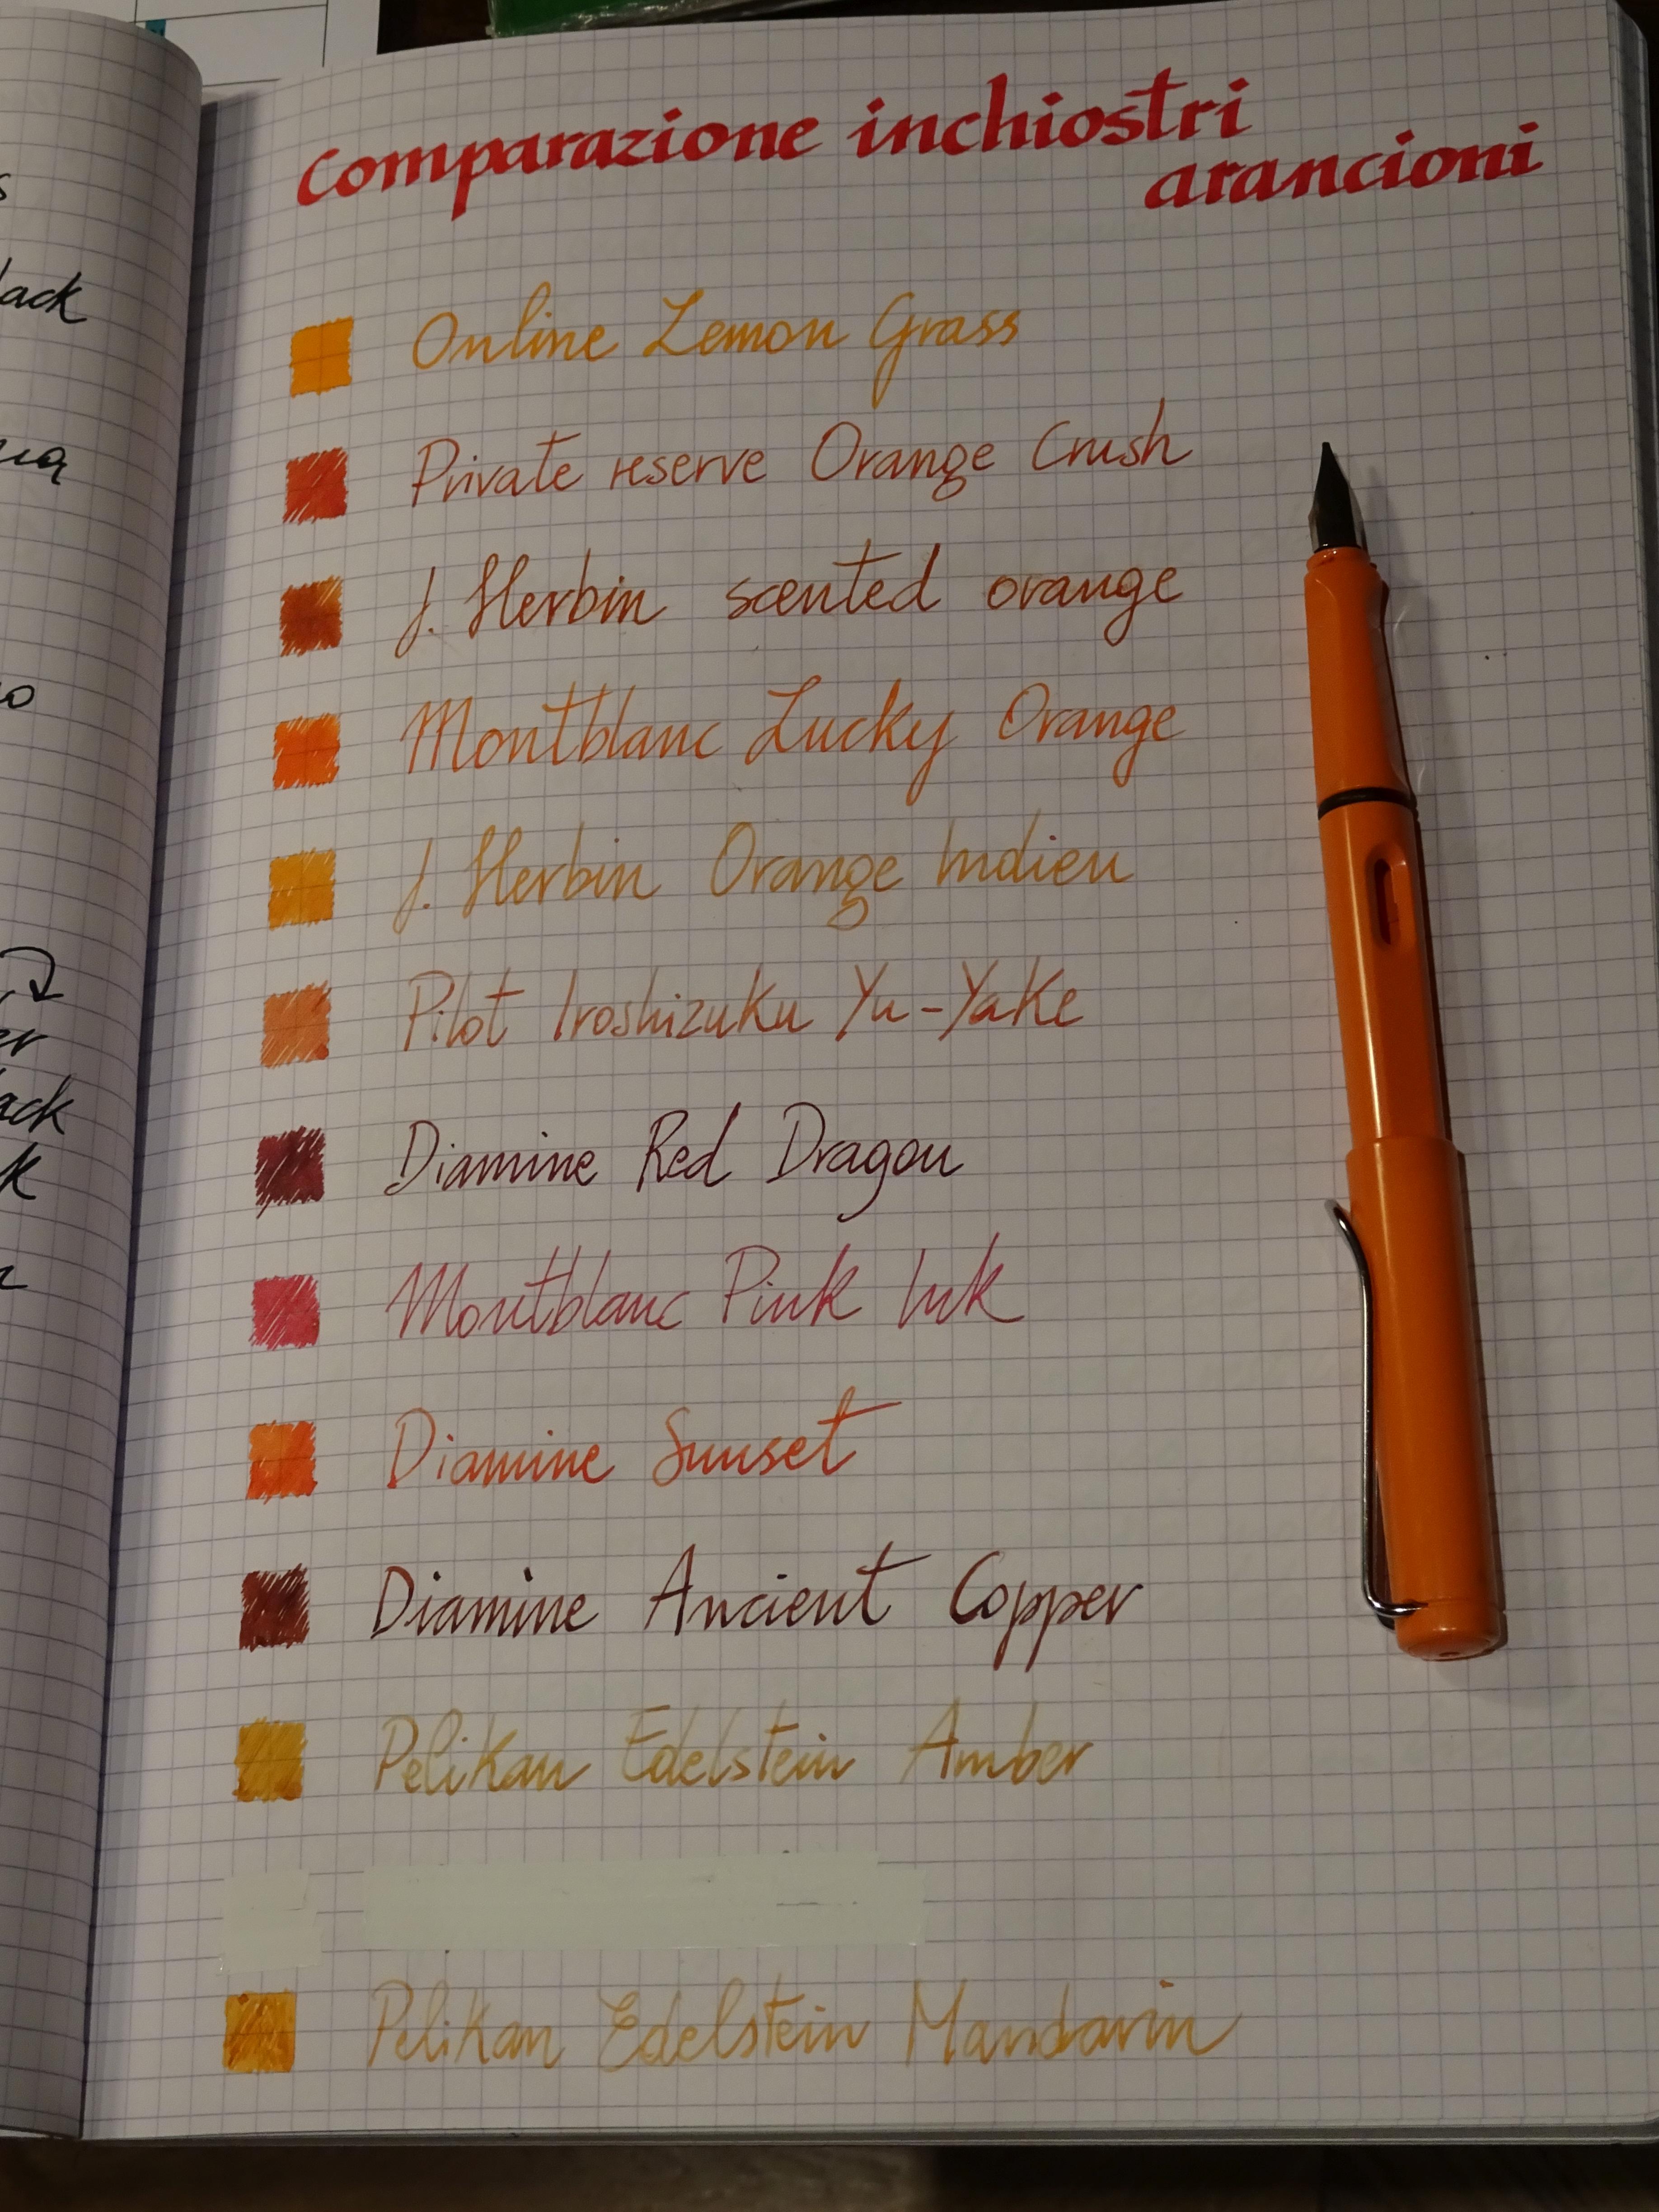 Comparazione inchiostri
arancioni
Online Lemon Grass
Private reserve Orange Crush
J. Herbin scented orange
Montblanc Lucky Orange
J. Herbin Orange Indien
Pilot Iroshizuku Yu-Yake
Diamine Red Dragon
Montblanc Pink Ink
Diamine Sunset
Diamine Ancient Copper
Pelikan Edelstein Amber
Pelikan Edelstein Mandarin